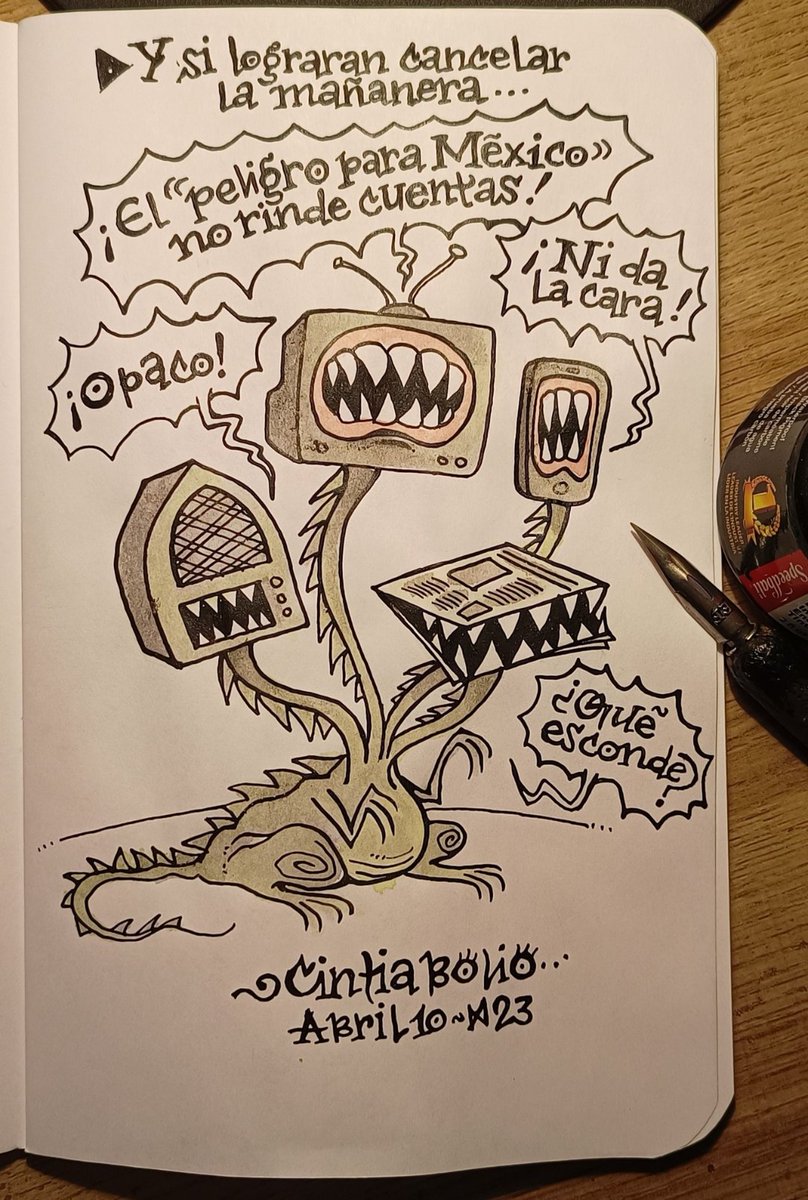 Y si lograran cancelar
la mañanera...
¡El "peligro para México"
no rinde cuentas!
¡Ni da
la cara!
¡Opaco!
¿Qué
esconde?
Cintia Bolio...
Abril 10~23
Speedball